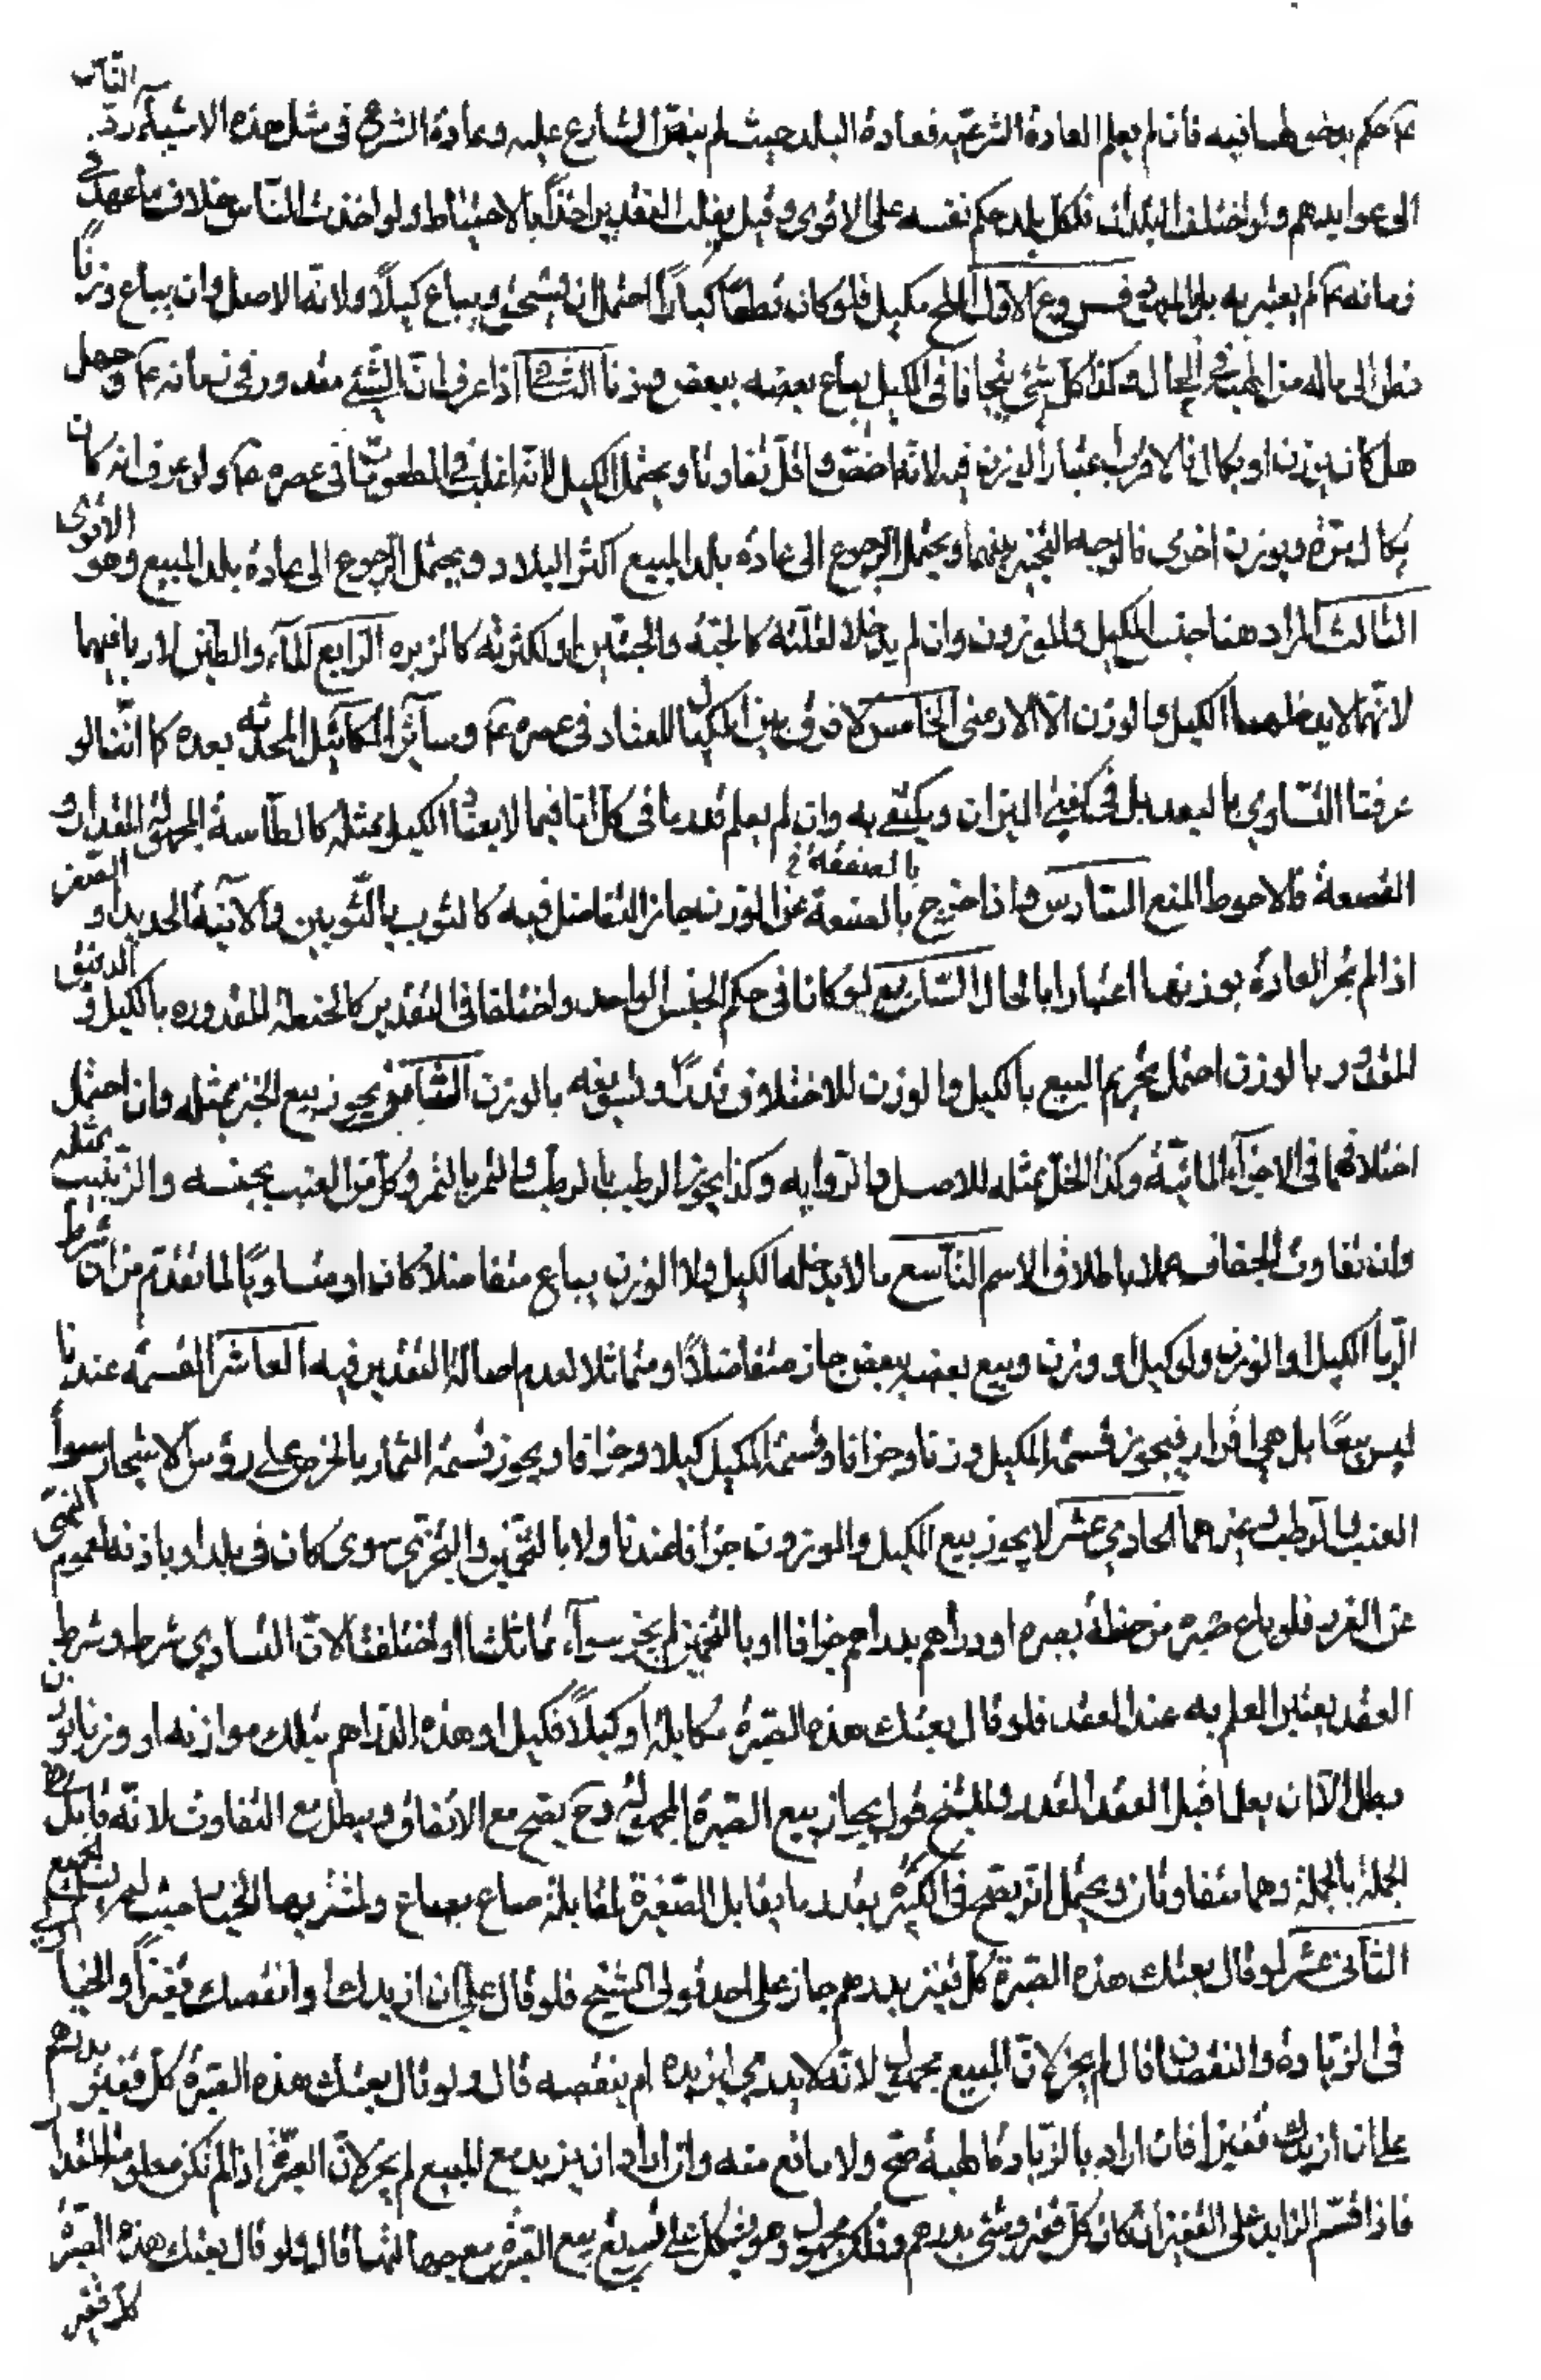 ع حكم بدخولهما فيه فان لم يعلم العادة الشرعيه فعادة البلد حيث لم ينص الشارع عليه وعادة الشرع في مثل هذه الاشياء رد الناس
الى عوايدهم ولو اختلفت البلدان فلكل بلد حكم نفسه على الاقوى وقيل يغلب التقدير اخذاً بالاحتياط ولو اخذت الناس خلاف ما عهد في
زمانه ع لم يعتبر به بل بالعهد فروع الاول الملح مكيل فلو كان قطعًا كبارًا احتمل ان يسحق ويباع كيلاً ولانه الاصل وان يباع وزنًا
نظرا الى ماله من الهيئة في الحال وكذا كل شئ يتجافا في المكيل يباع بعضه ببعض وزنا الثاني اذا عرف ان الشئ مقدور في زمانه ع وجهل
هل كان يوزن او يكال فالاقرب اعتبار الوزن فيه لانه اضبط واقل تفاوتا ويحتمل الكيل لانه اغلب في المطعومات في عصره ع ولو عرف انه كان
يكال مرة ويوزن اخرى فالوجه التخيير بينهما ويحتمل الرجوع الى عادة بلد المبيع اكثر البلاد ويحتمل الرجوع الى عادة بلد المبيع وهو الاقوى
الثالث المراد هنا جنس المكيل والموزون وان لم يدخلا لقلته كالحبة والحبتين او لكثرته كالزبره الرابع الماء والطين لا ربا فيهما
لانهما لا يدخلهما الكيل والوزن الا الارمني الخامس لا فرق بين المكيال المعتاد في عصره ع وسائر المكائيل المحدثه بعده كما اننا لو
عرفنا التساوي بالتعديل في كفتي الميزان ويكتفى به وان لم يعلم قدر ما في كل اما فيما لا يعتاد الكيل بمثله كالطاسة المجهولة المقدار و
القصعة فالاحوط المنع السادس ما اذا خرج بالصنعة عن الوزن جاز التفاضل فيه كالثوب بالثوبين والآنية الحديد او الصفر
اذا لم تجر العادة بوزنها اعتبارا بالحال السابع لو كانا في حكم الجنس الواحد واختلفا في التقدير كالحنطة المقدوره بالكيل و الدقيق
المقدور بالوزن احتمل تحريم البيع بالكيل والوزن للاختلاف قدرًا وتسويغه بالوزن الثامن يجوز بيع الخبز بمثله وان احتمل
اختلافهما في الاجزاء المائية وكذا الخل بمثله للاصل والروايه وكذا يجوز الرطب بالرطب والتمر بالتمر وكل من العنب بجنسه والزبيب بمثله
وان تفاوت الجفاف عملا باطلاق الاسم التاسع ما لا يدخله الكيل ولا الوزن يباع متفاضلاً كان او متساويًا لما تقدم من ان شرط
الربا الكيل او الوزن ولو كيل او وزن وبيع بعضه ببعض جاز متفاضلاً او متماثلا لعدم اصالة التقدير فيه العاشر القسمه عندنا
ليس بيعًا بل هي افراز فيجوز قسمة المكيل وزنا وجزافا وقسمة المكيل كيلا وجزافا ويجوز قسمة الثمار بالخرص على رؤس الاشجار سوآ
العنب والرطب وغيرهما الحادي عشر لا يجوز بيع المكيل والموزون جزافا عندنا ولا بالتخمين والتحري سوى كان في بلد او باذنه لعموم النهى
عن الغرر فلو باع صبرة من حنطة بصبره او دراهم بدراهم جزافا او بالتخمين لم يجز سوآء تماثلتا او اختلفتا لان التساوي شرط وشرط
العقد يعتبر العلم به عند العقد فلو قال بعتك هذه الصبرة مكايلة او كيلاً فكيل او هذه الدراهم بتلك موازنه او وزنا بوزن
بطل الا ان يعلما قبل العقد القدر وللشيخ قول بجواز بيع الصبرة المجهولة وح يصح مع الاتفاق ويبطل مع التفاوت لانه قابل
الجملة بالجملة وهما متفاوتان ويحتمل انه يصح في الكثيرة بقدر ما يقابل الصغيرة لمقابلة صاع بصاع ولمشتريها الخيار حيث لم يسلم الجميع
الثاني عشر لو قال بعتك هذه الصبرة كل قفيز بدرهم جاز على احد قولى الشيخ فلو قال على ان ازيدك او انقصك قفيزاً والخيار
في الزيادة والنقصان قال لم يجز لان المبيع مجهول لانه لا يدري ايزيده ام ينقصه قال ولو قال بعتك هذه الصبرة كل قفيز بدرهم
على ان ازيدك قفيزا فان اراد بالزيادة الهبة صح ولا مانع منه وان اراد ان يزيد مع المبيع لم يجز لان الصبرة اذا لم تكن معلومة المقدار
فاذا قسم الزايد على القفيزان كان كل قفيز وشئ بدرهم وذلك مجهول وهو يشكل على تسويغ بيع الصبرة مع جهالتها قال ولو قال بعتك هذه الصبرة
كل قفيز